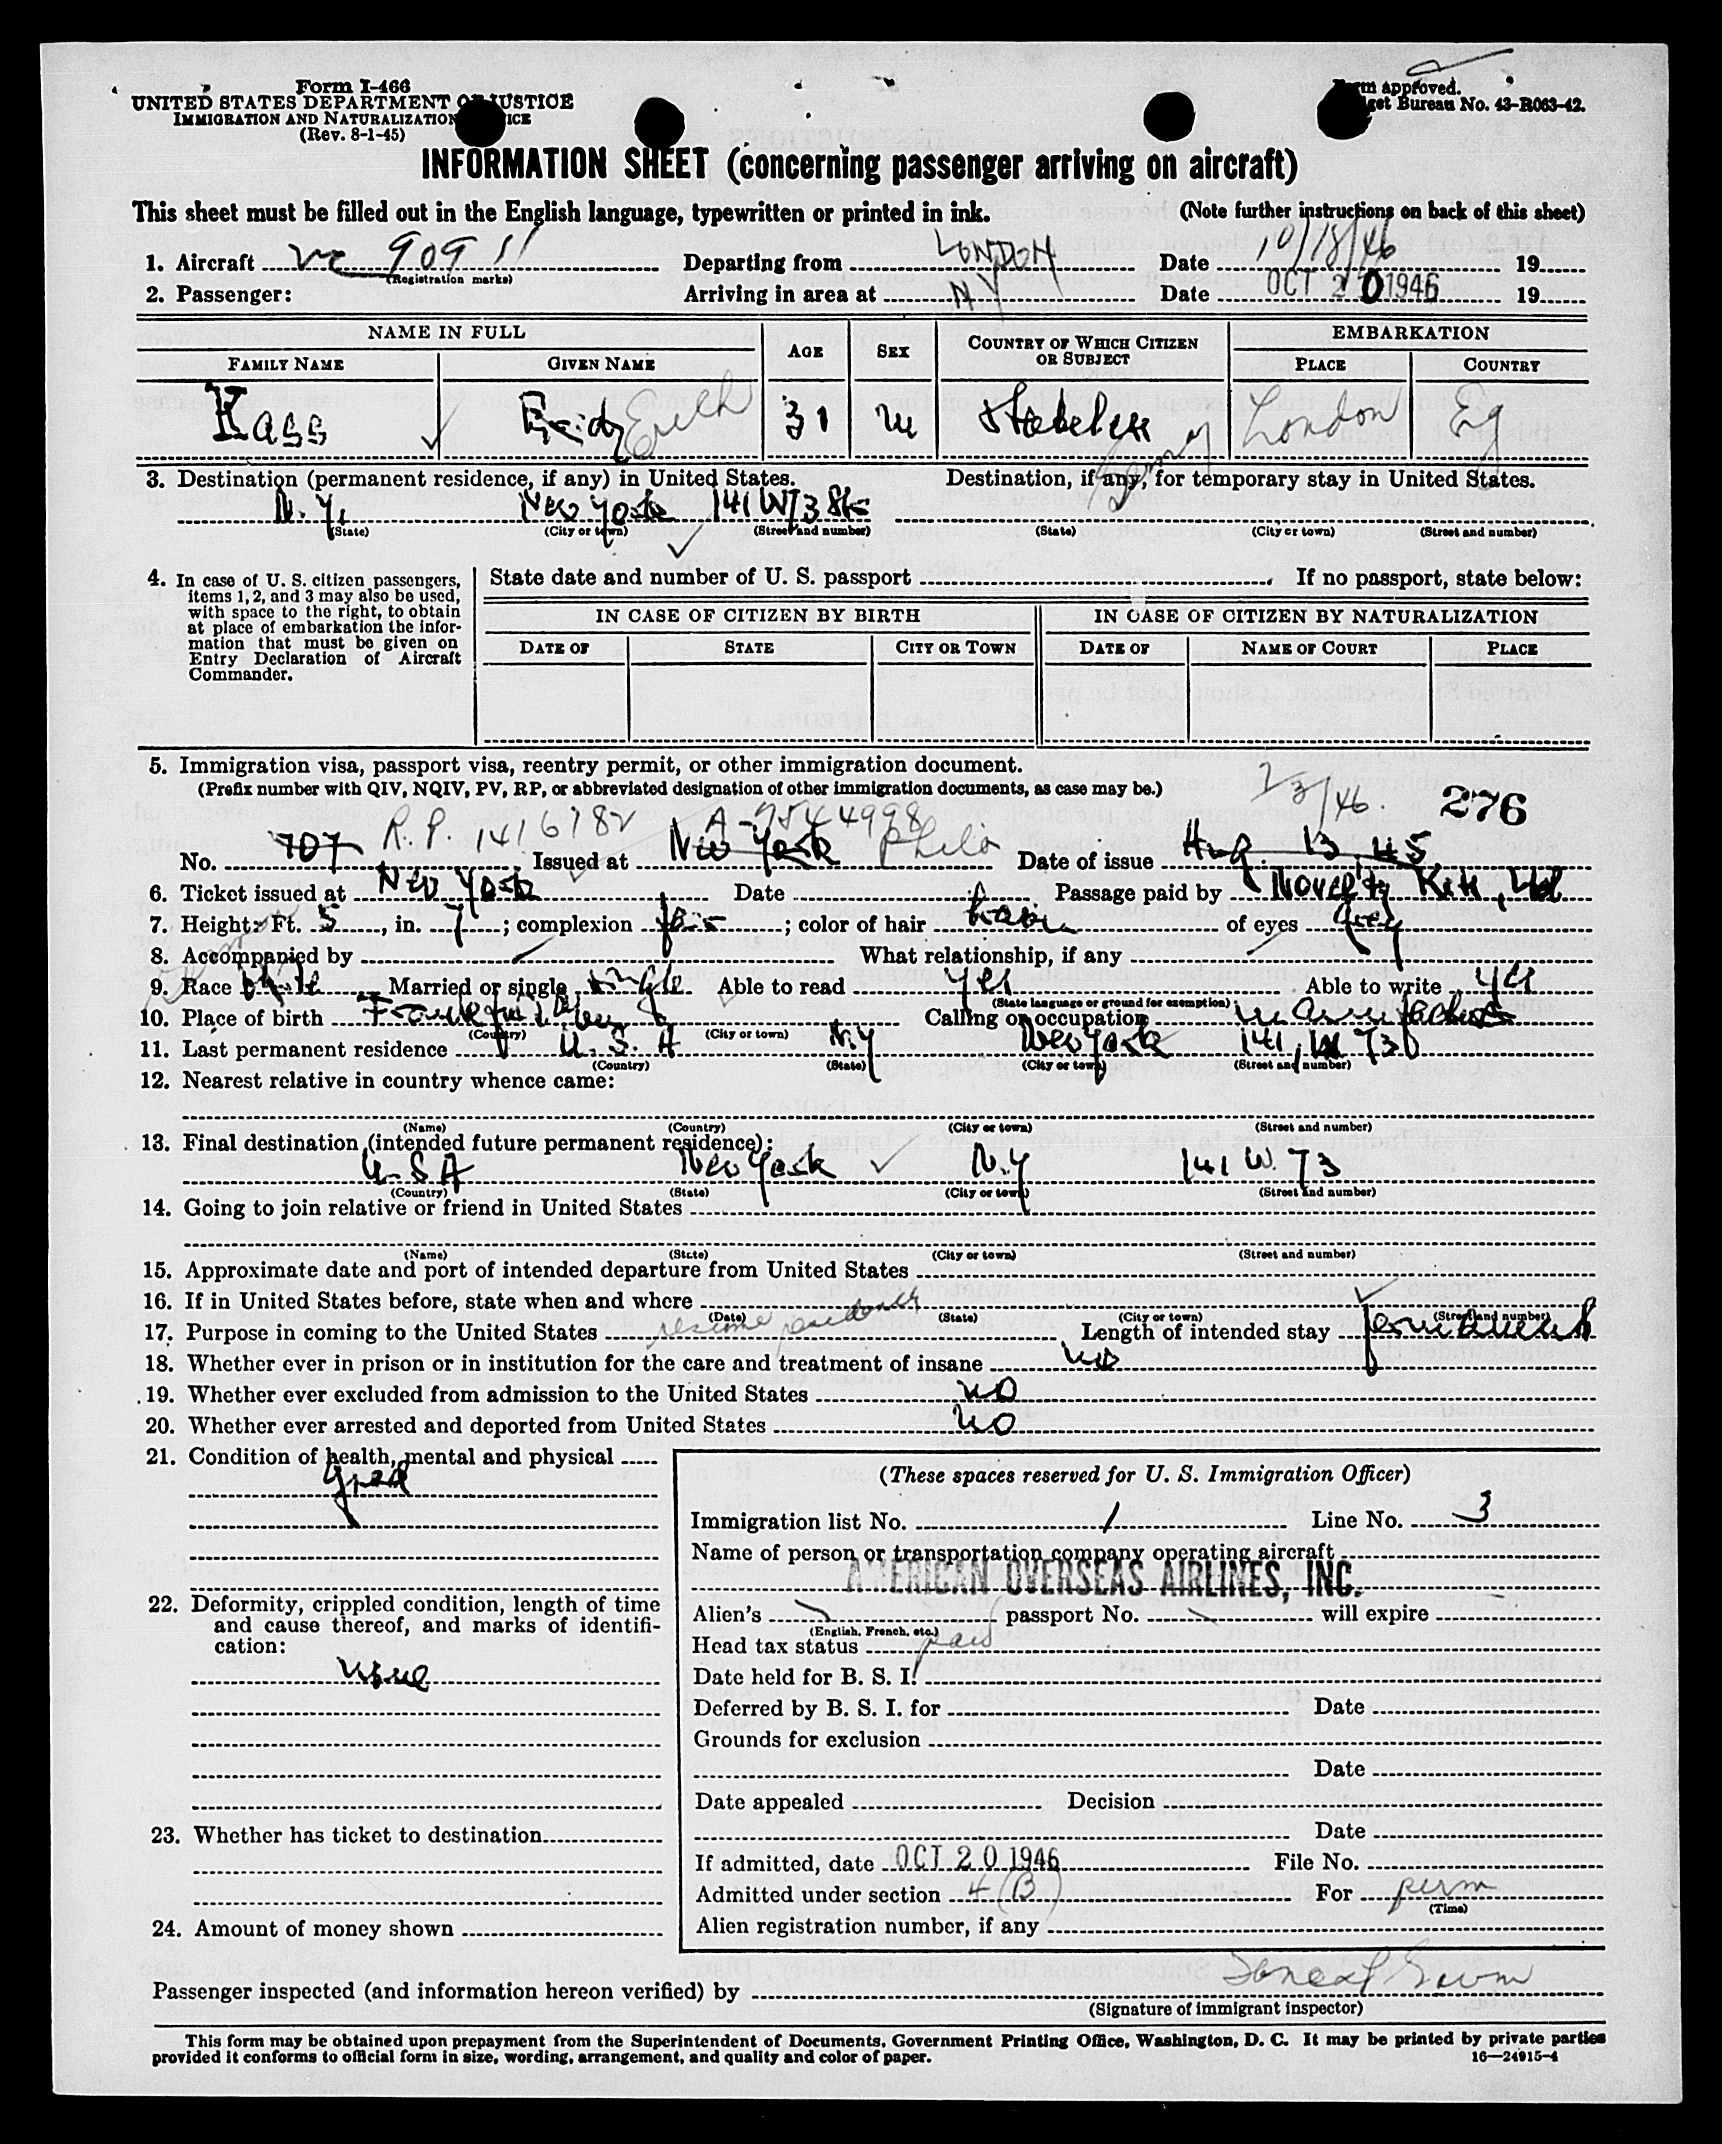 Form I-466
UNITED STATES DEPARTMENT OF JUSTICE
IMMIGRATION AND NATURALIZATION SERVICE
(Rev. 8-1-45)
Form approved.
Budget Bureau No. 43-R063-42.
INFORMATION SHEET (concerning passenger arriving on aircraft)
This sheet must be filled out in the English language, typewritten or printed in ink. (Note further instructions on back of this sheet)
1. Aircraft 909 Departing from LONDON Date 10/18/46 19
(Registration marks)
2. Passenger: Arriving in area at NY Date OCT 20 1946 19
NAME IN FULL AGE SEX COUNTRY OF WHICH CITIZEN OR SUBJECT EMBARKATION
FAMILY NAME GIVEN NAME PLACE COUNTRY
Kass Erich 31 M London Eg
3. Destination (permanent residence, if any) in United States. Destination, if any, for temporary stay in United States.
N.Y. New York 141 W 73 Str
(State) (City or town) (Street and number) (State) (City or town) (Street and number)
4. In case of U. S. citizen passengers, items 1, 2, and 3 may also be used, with space to the right, to obtain at place of embarkation the information that must be given on Entry Declaration of Aircraft Commander.
State date and number of U. S. passport If no passport, state below:
IN CASE OF CITIZEN BY BIRTH IN CASE OF CITIZEN BY NATURALIZATION
DATE OF STATE CITY OR TOWN DATE OF NAME OF COURT PLACE
5. Immigration visa, passport visa, reentry permit, or other immigration document.
(Prefix number with QIV, NQIV, PV, RP, or abbreviated designation of other immigration documents, as case may be.)
/46. 276
R.P. 1416782 A-7544998
No. 707 Issued at New York Phila Date of issue Aug. 13, 45.
6. Ticket issued at New York Date Passage paid by Novelty Kit, Ltd
7. Height: Ft. 5, in. 7; complexion fair; color of hair of eyes grey
8. Accompanied by What relationship, if any
9. Race white Married or single single Able to read yes Able to write yes
(State language or ground for exemption)
10. Place of birth Frankfurt Calling or occupation
(Country) (City or town)
11. Last permanent residence U.S.A N.Y New York 141, W 73
(Country) (State) (City or town) (Street and number)
12. Nearest relative in country whence came:
(Name) (Country) (City or town) (Street and number)
13. Final destination (intended future permanent residence):
U.S A New York N.Y 141 W. 73
(Country) (State) (City or town) (Street and number)
14. Going to join relative or friend in United States
(Name) (State) (City or town) (Street and number)
15. Approximate date and port of intended departure from United States
16. If in United States before, state when and where
(Date) (State) (City or town) (Street and number)
17. Purpose in coming to the United States resume residence Length of intended stay permanent
18. Whether ever in prison or in institution for the care and treatment of insane no
19. Whether ever excluded from admission to the United States no
20. Whether ever arrested and deported from United States no
21. Condition of health, mental and physical
good
22. Deformity, crippled condition, length of time and cause thereof, and marks of identification:
none
23. Whether has ticket to destination
24. Amount of money shown
(These spaces reserved for U. S. Immigration Officer)
Immigration list No. 1 Line No. 3
Name of person or transportation company operating aircraft
AMERICAN OVERSEAS AIRLINES, INC.
Alien's passport No. will expire
(English, French, etc.)
Head tax status paid
Date held for B. S. I.
Deferred by B. S. I. for Date
Grounds for exclusion
Date
Date appealed Decision
Date
If admitted, date OCT 20 1946 File No.
Admitted under section 4(B) For perm
(Time)
Alien registration number, if any
Passenger inspected (and information hereon verified) by
(Signature of immigrant inspector)
This form may be obtained upon prepayment from the Superintendent of Documents, Government Printing Office, Washington, D. C. It may be printed by private parties
provided it conforms to official form in size, wording, arrangement, and quality and color of paper. 16—24915-4